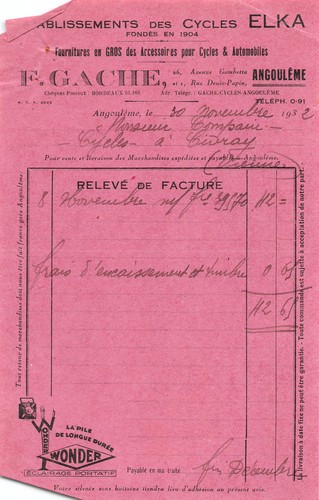 ETABLISSEMENTS DES CYCLES ELKA
FONDÉS EN 1904
Fournitures en GROS des Accessoires pour Cycles & Automobiles
F. GACHE,
26, Avenue Gambetta
et 1, Rue Denis-Papin,
ANGOULÊME
Chèques Postaux : BORDEAUX
Adr. Télégr. : GACHE-CYCLES-ANGOULÊME
TÉLÉPH. 0-91
Angoulême, le 30 Novembre 1932
Monsieur
Cycles à Civray
Pour vente et livraison des Marchandises expédiées et payables à Angoulême.
Vienne
RELEVÉ DE FACTURE
8 Novembre 112 =
frais d'encaissement et timbre 0 65
112 65
Tout retour de marchandises doit nous être fait franco gare Angoulême.
Toute commande est sujette à acceptation de notre part.
La livraison à date fixe ne peut être garantie.
WONDER
LA PILE
DE LONGUE DURÉE
WONDER
ÉCLAIRAGE PORTATIF
Payable en ma traite fin Décembre
Votre silence sous huitaine tiendra lieu d'adhésion au présent avis.